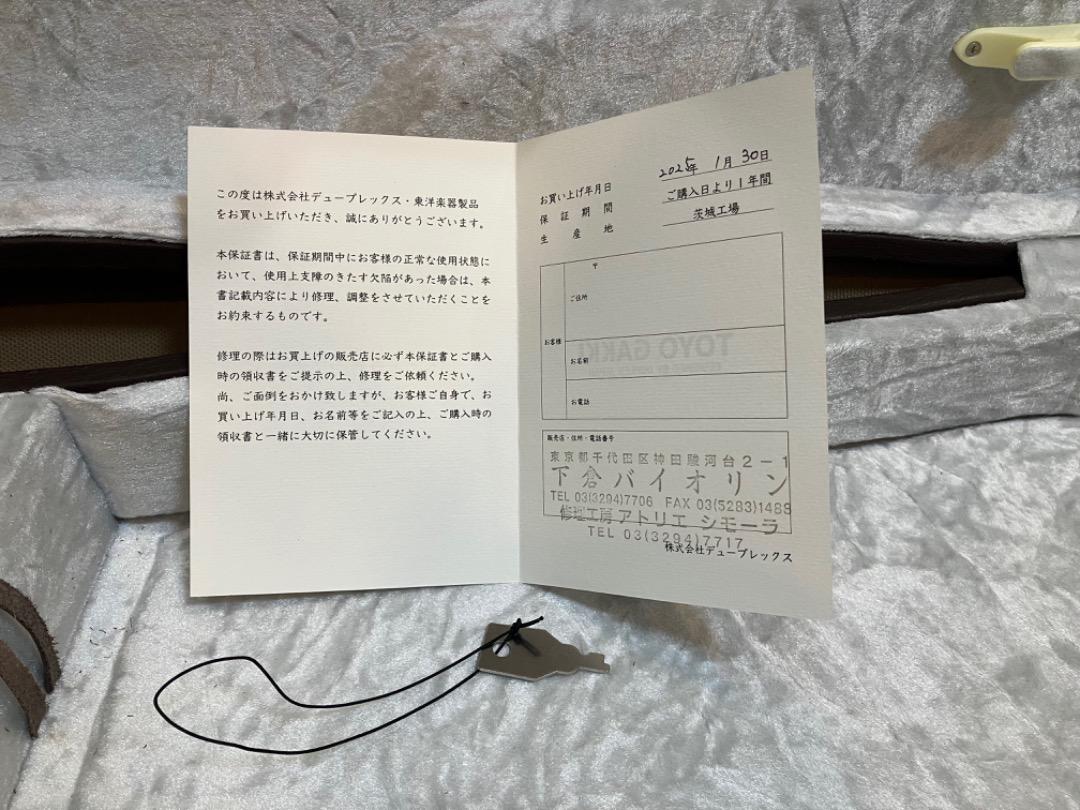 この度は株式会社デュープレックス・東洋楽器製品
をお買い上げいただき、誠にありがとうございます。
本保証書は、保証期間中にお客様の正常な使用状態に
おいて、使用上支障のきたす欠陥があった場合は、本
書記載内容により修理、調整をさせていただくことを
お約束するものです。
修理の際はお買上げの販売店に必ず本保証書とご購入
時の領収書をご提示の上、修理をご依頼ください。
尚、ご面倒をおかけ致しますが、お客様ご自身で、お
買い上げ年月日、お名前等をご記入の上、ご購入時の
領収書と一緒に大切に保管してください。
お買い上げ年月日 2025年 1月 30日
保証期間 ご購入日より1年間
生産地 茨城工場
〒
ご住所
お客様
お名前
お電話
TOYO GAKKI
販売店・住所・電話番号
東京都千代田区神田駿河台2-1
下倉バイオリン
TEL 03(3294)7706 FAX 03(5283)1488
修理工房アトリエ シモーラ
TEL 03(3294)7717
株式会社デュープレックス